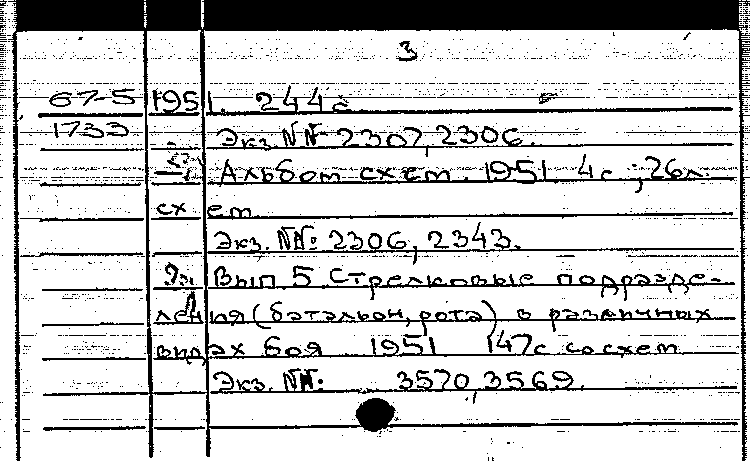 3
67-5 1951. 244с
1733 Экз. NN 2307, 2306.
Альбом схем. 1951. 4с.; 26л.
схем
Экз. NN: 2306, 2343.
Вып. 5 Стрелковые подразде-
ления (батальон, рота) в различных
видах боя 1951 147с со схем
Экз. NN: 3570, 3569.